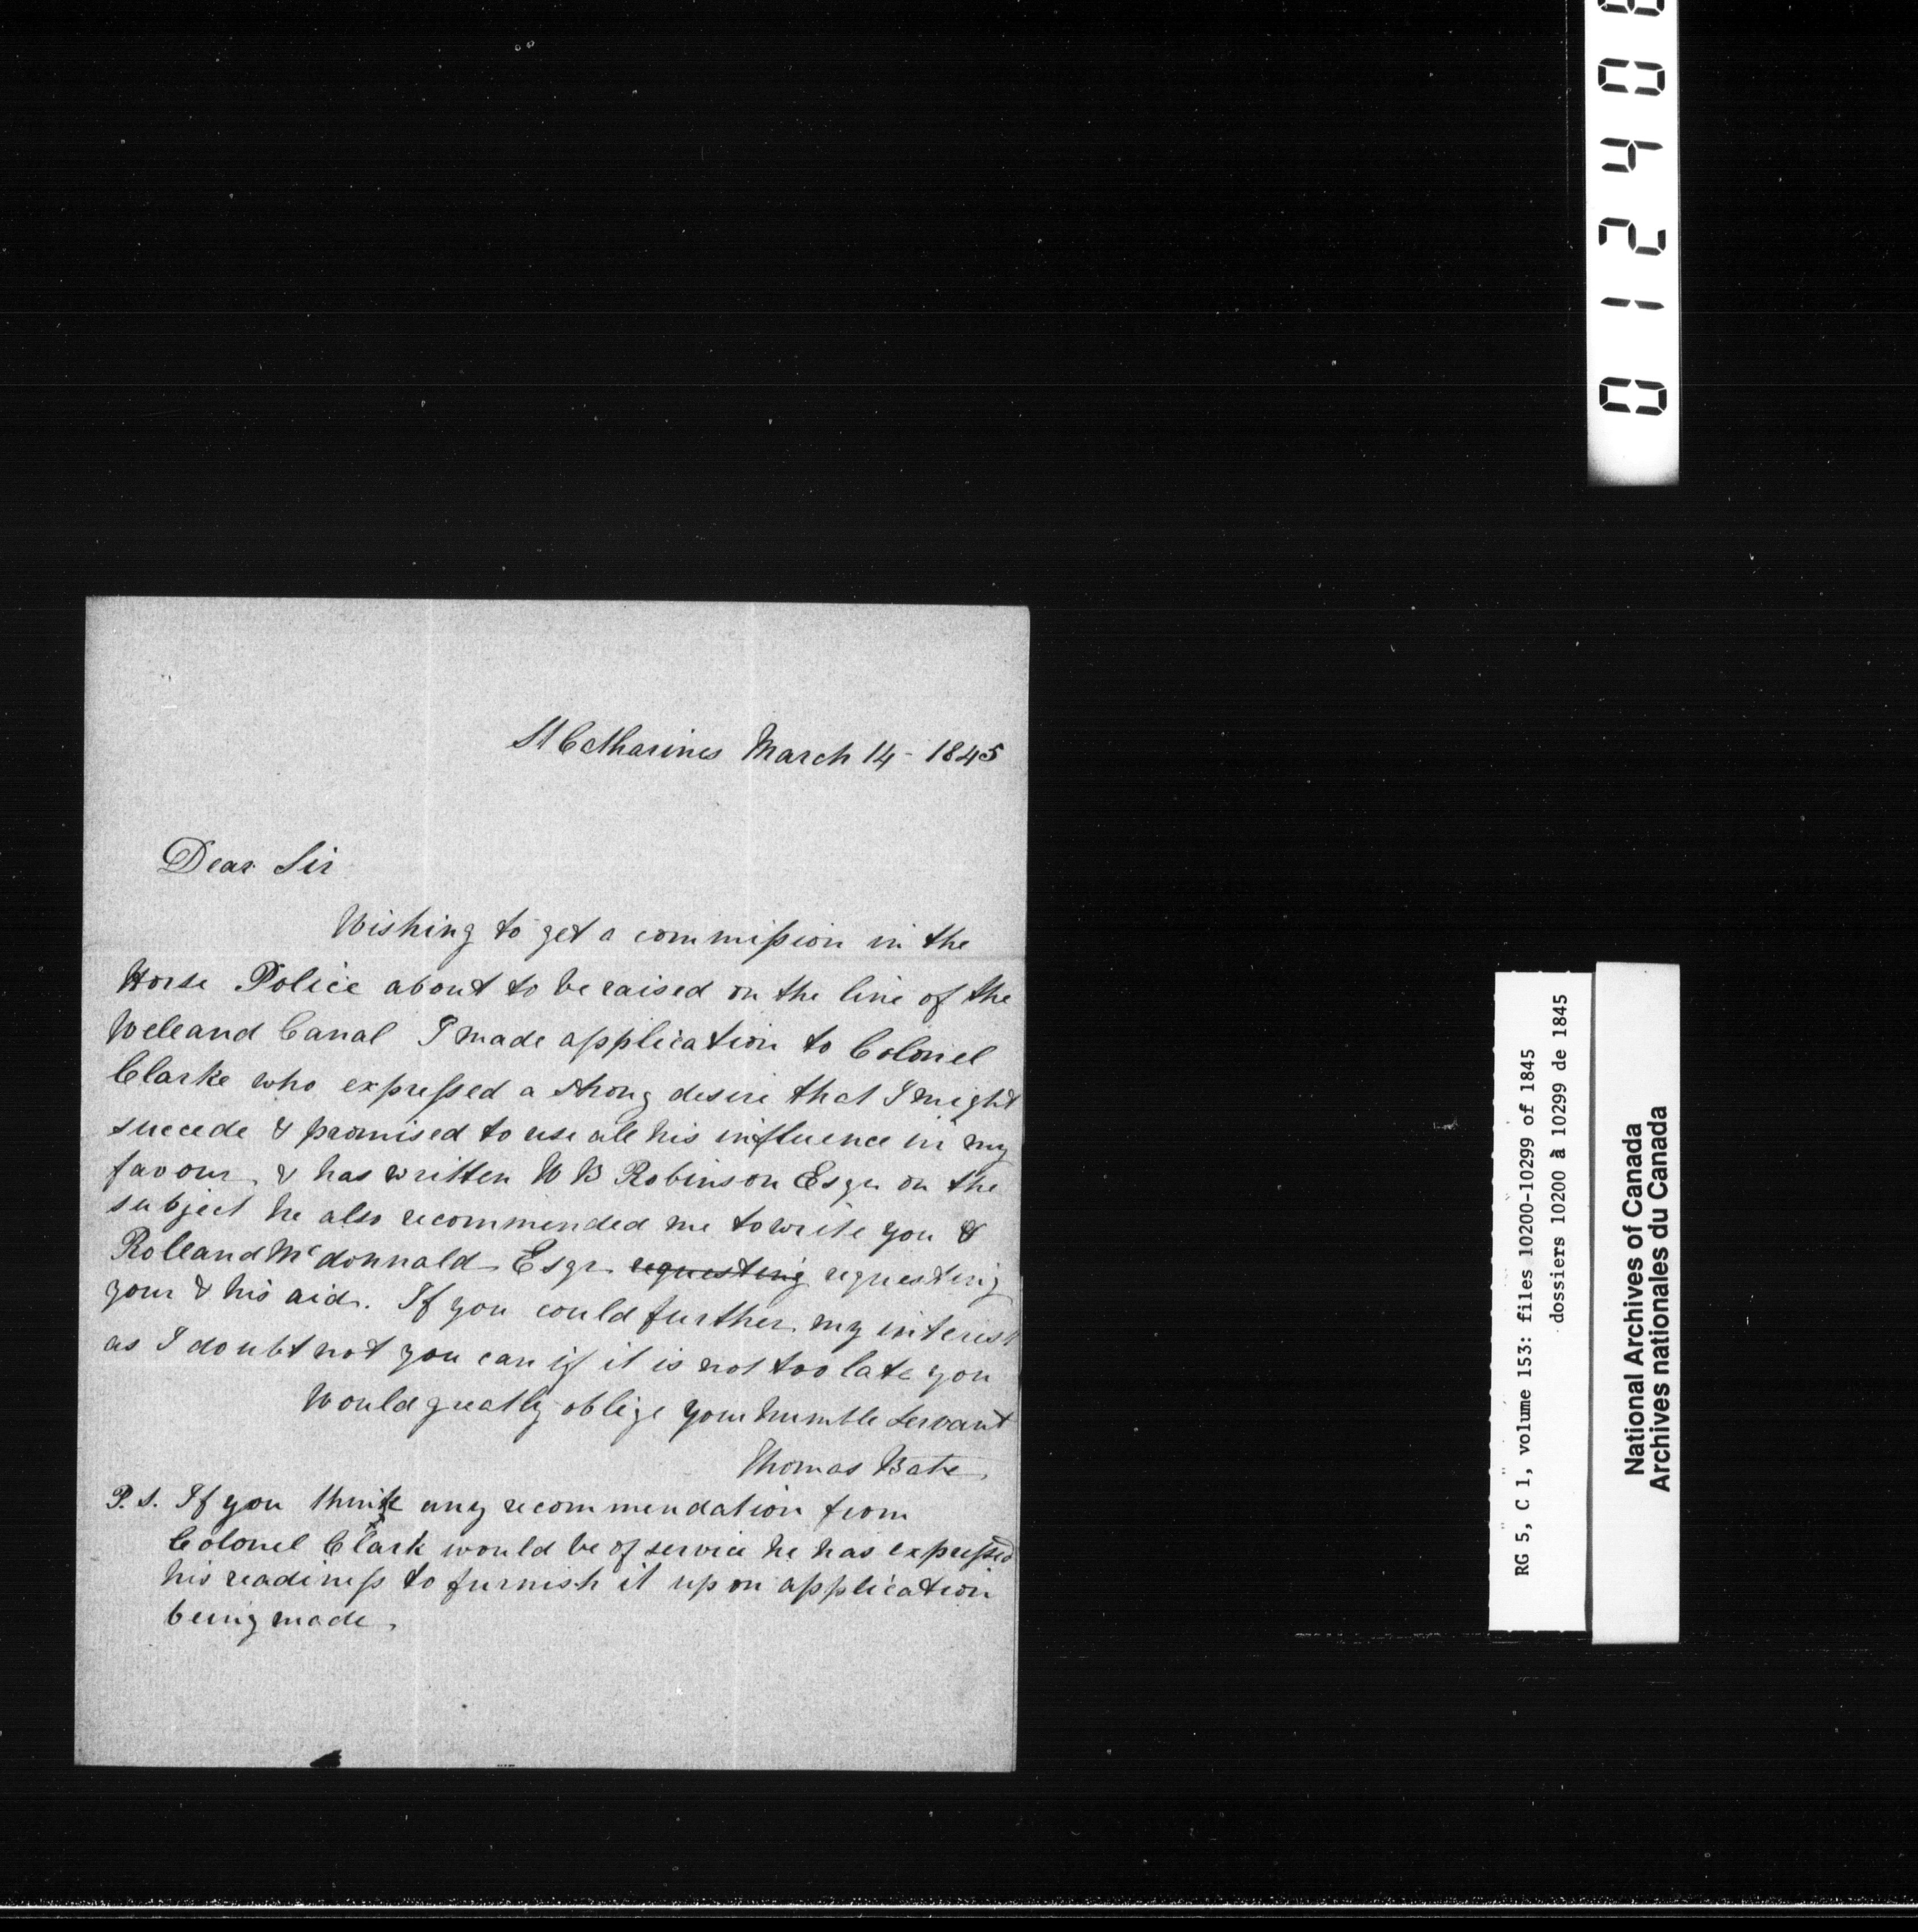 St Catharines March 14 - 1845
Dear Sir
Wishing to get a commission in the
Horse Police about to be raised on the line of the
Welland Canal I made application to Colonel
Clarke who expressed a strong desire that I might
succede & promised to use all his influence in my
favour, & has written W B Robinson Esqr on the
subject he also recommended me to write you &
Rolland Mcdonnald Esqr. requesting requesting
your & his aid. If you could further my interest
as I doubt not you can if it is not too late you
Would greatly oblige your humble Servant
Thomas Bate.
P.S. If you think any recommendation from
Colonel Clark would be of service he has expressed
his readiness to furnish it upon application
being made.
RG 5, C 1, volume 153: files 10200-10299 of 1845
dossiers 10200 à 10299 de 1845
National Archives of Canada
Archives nationales du Canada
01240